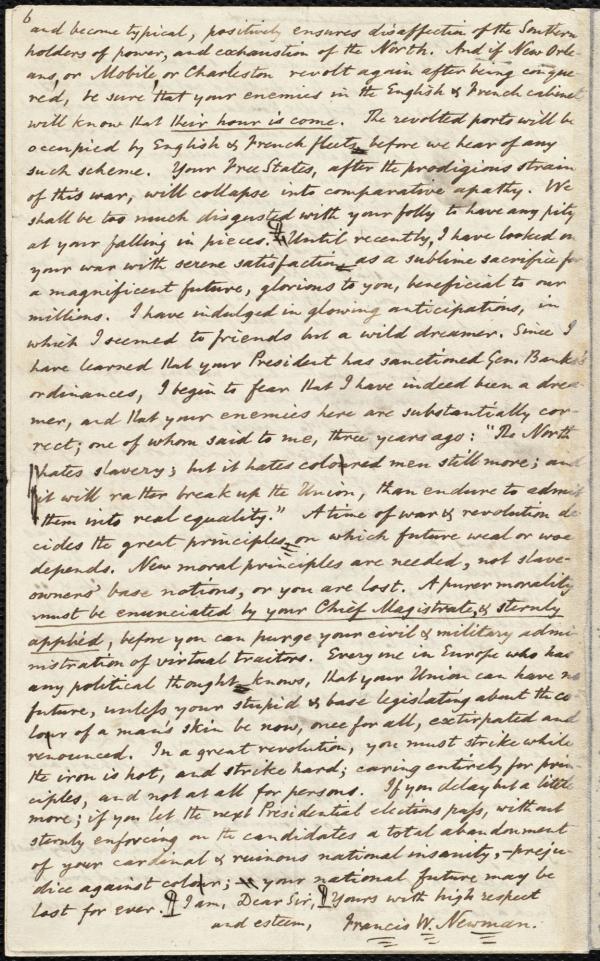 6
and become typical, positively ensures disaffection of the Southern
holders of power, and exhaustion of the North. And if New Orle-
ans, or Mobile, or Charleston revolt again after being conque-
red, be sure that your enemies in the English & French cabinet
will know that their hour is come. The revolted ports will be
occupied by English & French fleets, before we hear of any
such scheme. Your Free States, after the prodigious strain
of this war, will collapse into comparative apathy. We
shall be too much disgusted with your folly to have any pity
at your falling in pieces. Until recently, I have looked on
your war with serene satisfaction, as a sublime sacrifice for
a magnificent future, glorious to you, beneficial to our
millions. I have indulged in glowing anticipations, in
which I seemed to friends but a wild dreamer. Since I
have learned that your President has sanctioned Gen. Banks's
ordinances, I begin to fear that I have indeed been a drea-
mer, and that your enemies here are substantially cor-
rect; one of whom said to me, three years ago: "The North
hates slavery; but it hates coloured men still more; and
it will rather break up the Union, than endure to admit
them into real equality." A time of war & revolution de-
cides the great principles, on which future weal or woe
depends. New moral principles are needed, not slave-
owners' base notions, or you are lost. A purer morality
must be enunciated by your Chief Magistrate, & sternly
applied, before you can purge your civil & military admi-
nistration of virtual traitors. Every one in Europe who has
any political thought, knows, that your Union can have no
future, unless your stupid & base legislating about the co-
lour of a man's skin be now, once for all, extirpated and
renounced. In a great revolution, you must strike while
the iron is hot, and strike hard; caring entirely for prin-
ciples, and not at all for persons. If you delay but a little
more; if you let the next Presidential elections pass, without
sternly enforcing on the candidates a total abandonment
of your cardinal & ruinous national insanity, - preju-
dice against colour; - your national future may be
lost for ever. I am, Dear Sir, Yours with high respect
and esteem, Francis W. Newman.